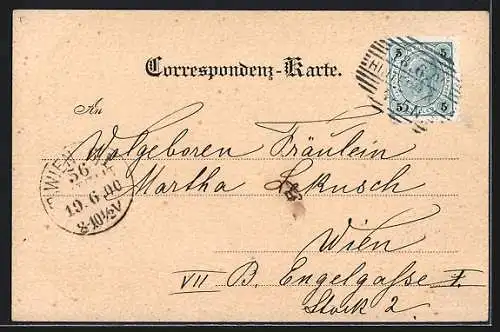 5 5
Correspondenz-Karte.
5 5
An
Wolgeboren Fräulein
Martha
WIEN
19.6.00
8-10½V
Wien
VII B. Engelgasse 7.
Stock 2.